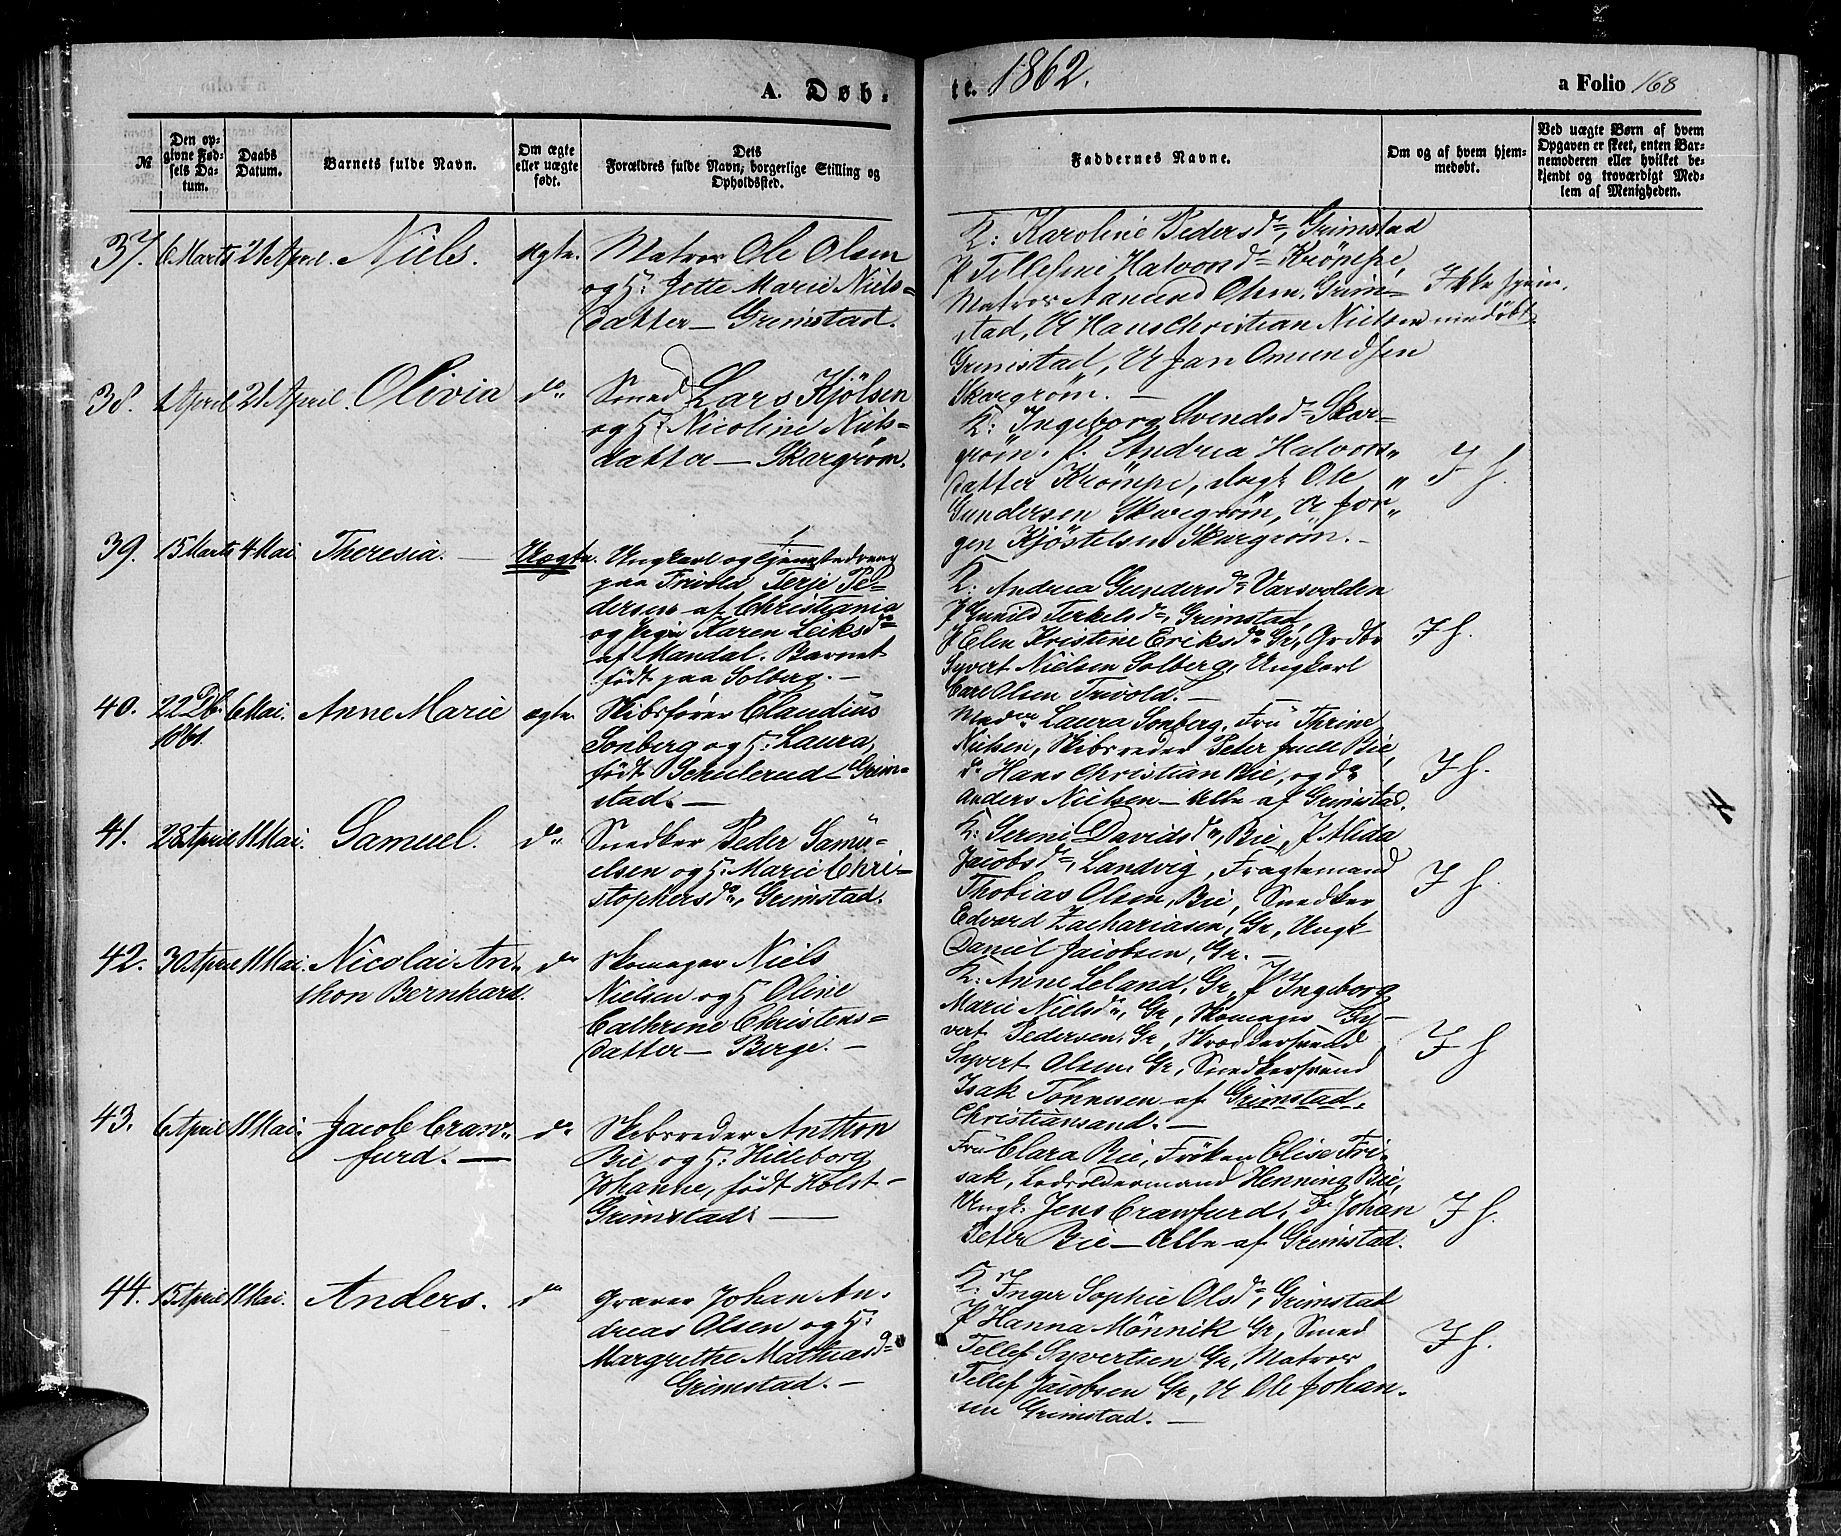 A. Døb-
te. 1862.
a Folio 168
№
Den op-
givne Fød-
sels Da-
tum.
Daabs
Datum.
Barnets fulde Navn.
Om ægte
eller uægte
født.
Dets
Forældres fulde Navn, borgerlige Stilling og
Opholdssted.
Faddernes Navne.
Om og af hvem hjem-
medøbt.
Ved uægte Børn af hvem
Opgaven er skeet, enten Bar-
nemoderen eller hvilket be-
kjendt og troværdigt Med-
lem af Menigheden.
37. 6 Marts 21 April. Niels. ægte.
Matros Ole Olsen
og H: Jette Marie Niels=
datter – Grimstad.
K: Karoline Pedersd., Grimstad
P Tellefine Halvorsd. Krømpe,
Matros Aamund Olsen, Grim-
stad, U Hans Christian Nielsen
Grimstad, U Jan Omundsen
Skargrøm. –
Ikke hjem.
medøbt.
38. 1 April 21 April. Olivia do
Smed Lars Kjølsen
og H: Nicoline Niels=
datter – Skargrøm.
K: Ingeborg Svendsd. Skar-
grøm. P. Andrea Halvors"
datter Krømpe, Ole "
Gundersen Skargrøm, U Jør"
gen Kjøstelsen Skargrøm. –
I H.
39. 15 Marts 4 Mai Theresia. – Uægte.
Ungkarl og Tjenestedreng
paa Frivold Terje Pe-
dersen af Christiania
og Pige Karen Leiksd.
af Mandal. Barnet
født paa Solberg. –
K. Andrea Gundersd. Varsvolden
P Gunild Terkelsd., Grimstad
P Elen Kristine Eriksd. Gr, Grdbr
Syvert Nielsen Solberg, Ungkarl
Carl Olsen Frivold. –
I H.
40. 22 Db. 6 Mai. Anne Marie ægte.
1861.
Skibsfører Claudius
Sonberg og H: Laura,
født Schulerud – Grim=
stad. –
Madm Laura Sonberg, Fru Thrine
Nielsen, Skibsreder Peter Juell Bie,
do Hans Christian Bie, og do
Anders Nielsen – Alle af Grimstad.
I H.
41. 28 April 11 Mai. Samuel. do
Snedker Peder Samu-
elsen og H: Marie Chri-
stophersd., Grimstad.
K: Serine Davidsd., Bie, P Alida
Jacobsd., Landvig, Fragtemand
Thobias Olsen, Bie, Snedker
Edvard Zachariasen, Gr, Ungk
Daniel Jacobsen, Gr. –
I H.
42. 30 April 11 Mai. Nicolai An- do
thon Bernhard.
Skomager Niels
Nielsen og H Oline
Cathrine Christens=
datter – Berge. –
K. Anne Leland, Gr, P Ingeborg
Marie Nielsd., Gr, Skomager Sy-
vert Pedersen, Gr, Skræddersvend
Syvert Olsen Gr, Snedkersvend
Isak Tønnesen af Grimstad.
Christiansand. –
I H
43. 6 April 11 Mai. Jacob Craw" do
furd. –
Skibsreder Anthon
Bie og H: Hilleborg
Johanne, født Holst –
Grimstad. –
Fru Clara Bie, Frøken Elise Fri-
sak, Lodsoldermand Henning Bie,
Ungk. Jens Crawfurd, Johan
Peter Bie – Alle af Grimstad.
I H.
44. 15 April 11 Mai. Anders. do
Graver Johan An-
dreas Olsen og H:
Margrethe Mathiasd.
Grimstad. –
K. Inger Sophie Olsd., Grimstad
P Hanna Mønnik Gr, Smed
Tellef Syvertsen Gr, Matros
Tellef Jacobsen Gr, U Ole Johan-
sen Grimstad. –
I H.